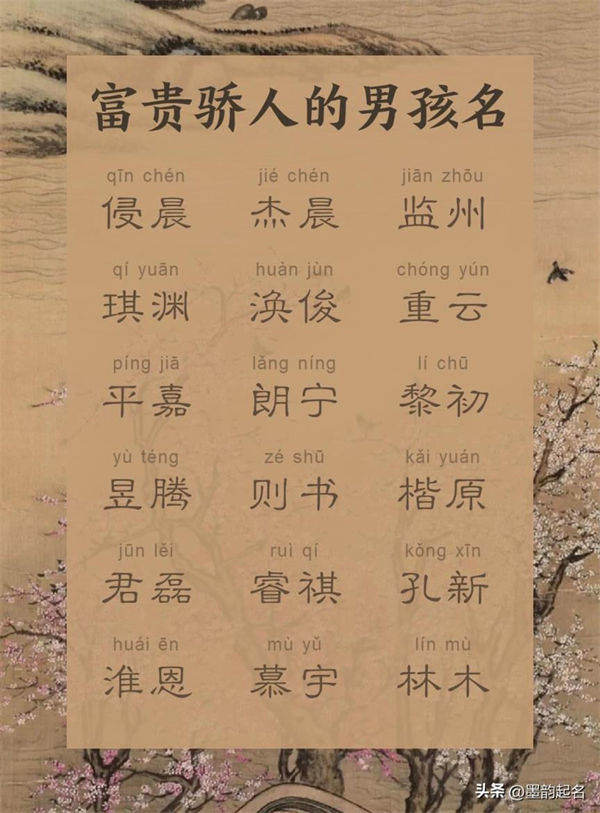 富贵骄人的男孩名
qīn chén jié chén jiān zhōu
侵晨 杰晨 监州
qí yuān huàn jùn chóng yún
琪渊 涣俊 重云
píng jiā lǎng níng lí chū
平嘉 朗宁 黎初
yù téng zé shū kǎi yuán
昱腾 则书 楷原
jūn lěi ruì qí kǒng xīn
君磊 睿祺 孔新
huái ēn mù yǔ lín mù
淮恩 慕宇 林木
头条 @墨韵起名